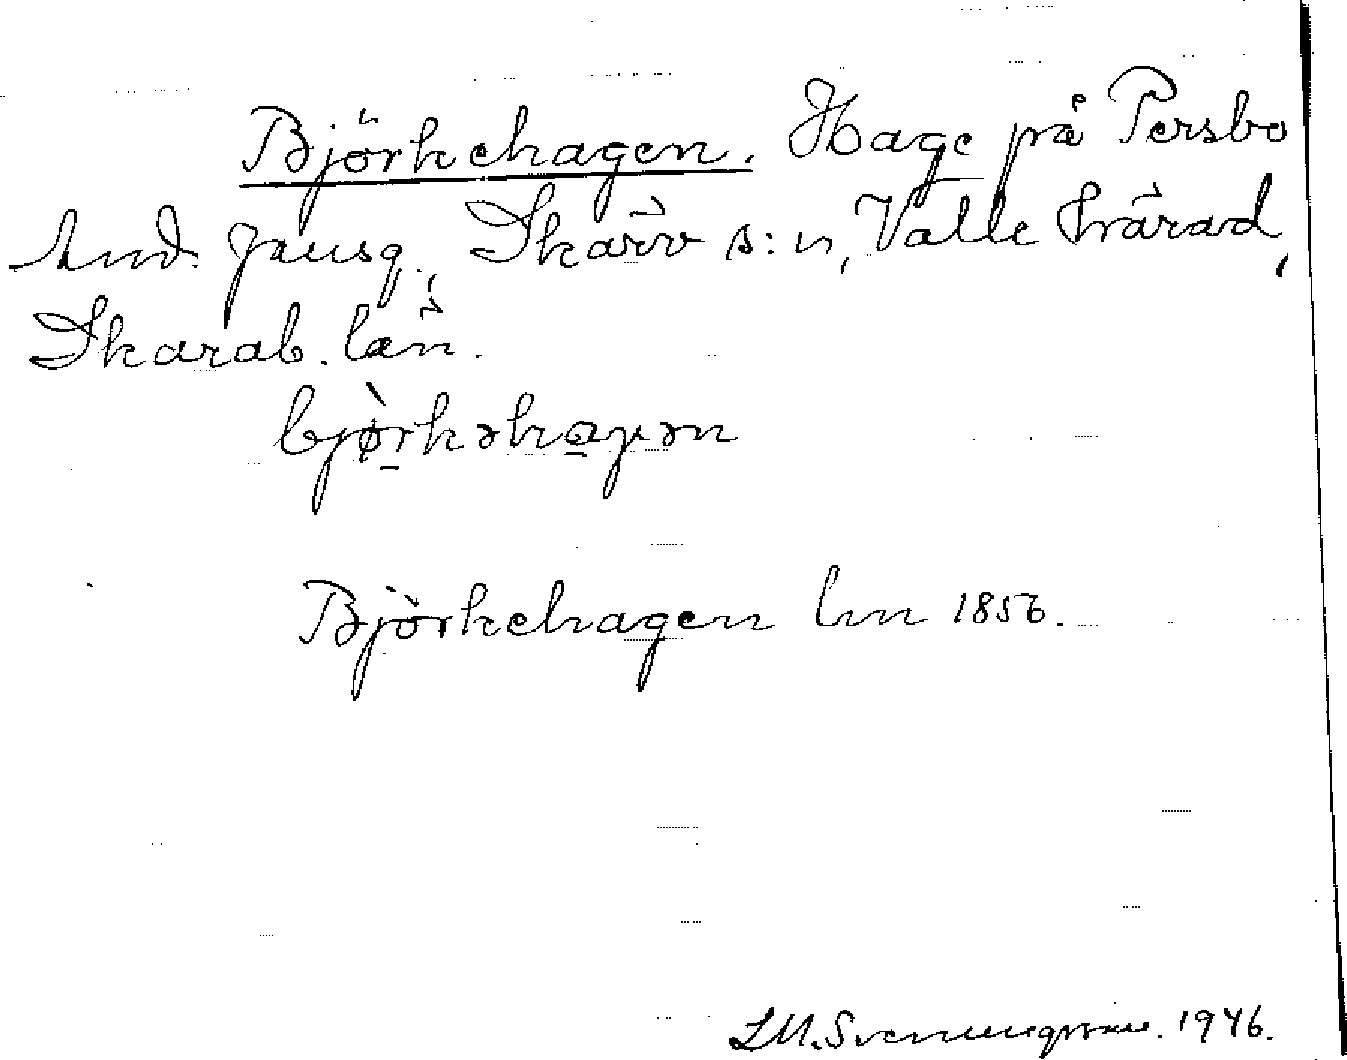 Björkehagen. Hage på Persbo
And. Jansg., Skärv s:n, Valle härad,
Skarab. län.
bjø̀rkəhaɣən
Björkehagen Lm 1856.
LM. Svenungsson. 1946.